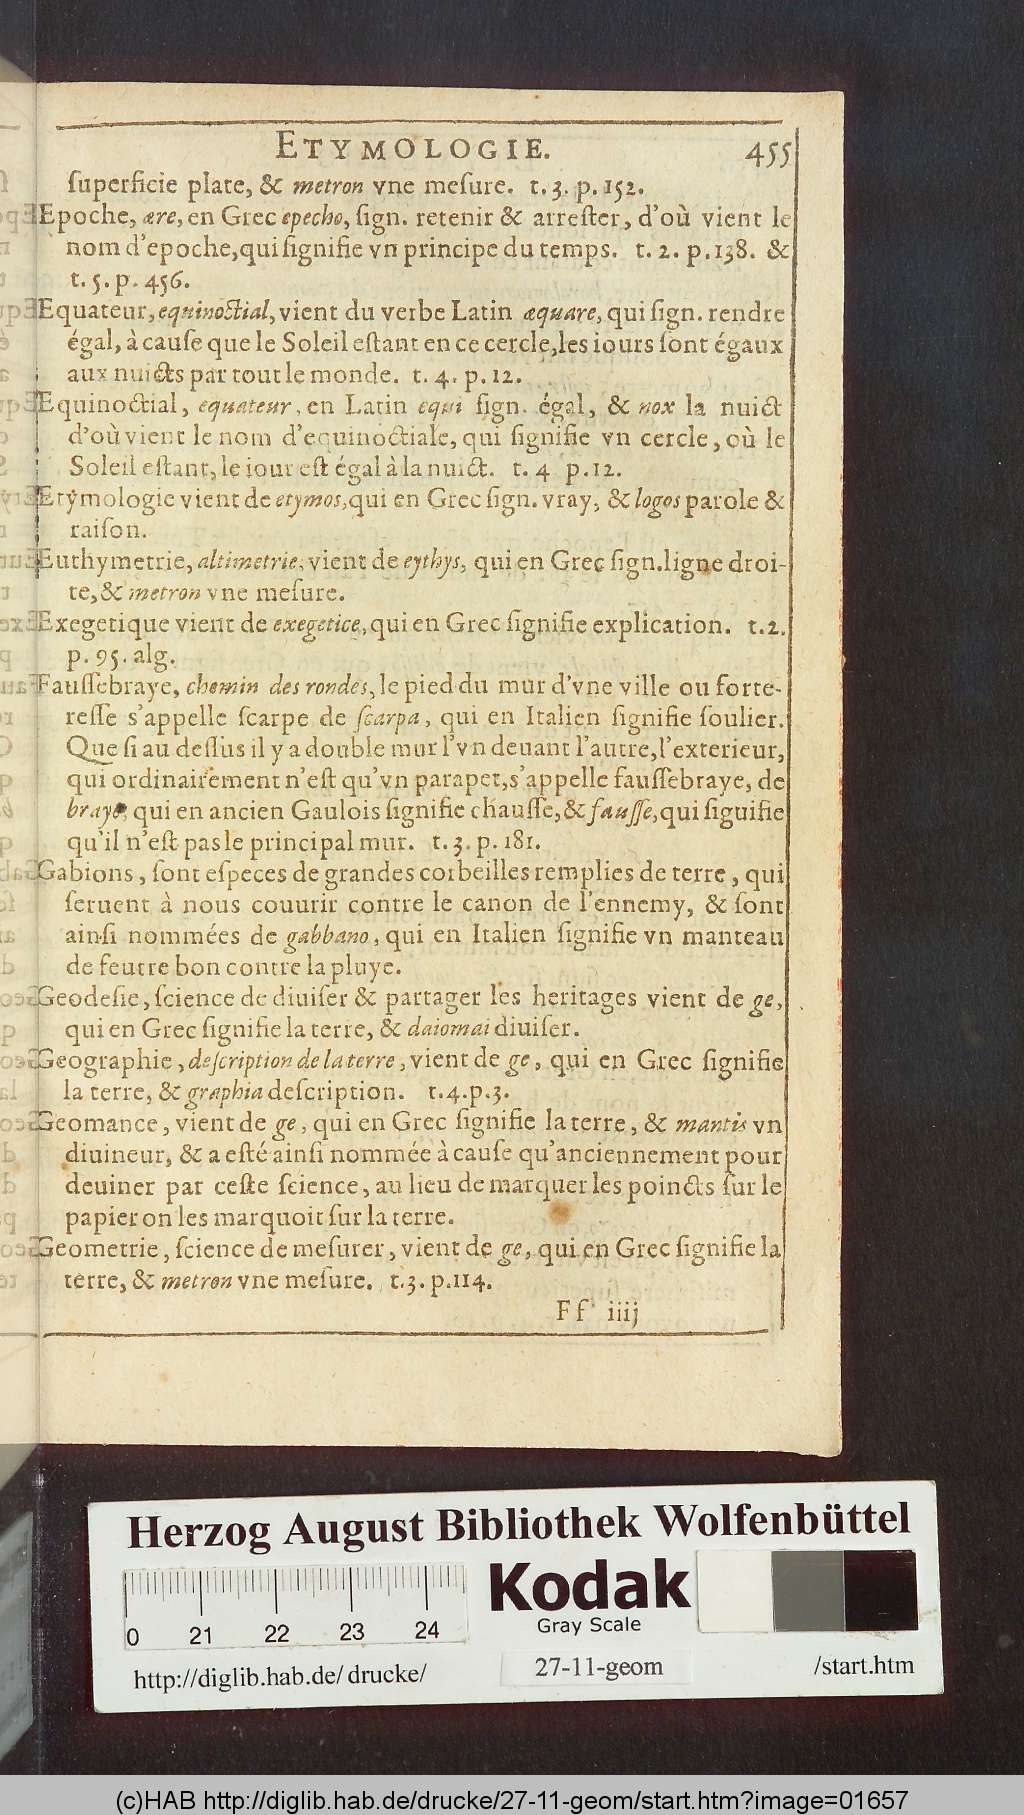 ETYMOLOGIE. 455
ſuperficie plate, & metron vne meſure. t. 3. p. 152.
Epoche, ære, en Grec epecho, ſign. retenir & arreſter, d'où vient le
nom d'epoche, qui ſignifie vn principe du temps. t. 2. p. 138. &
t. 5. p. 456.
Equateur, equinoctial, vient du verbe Latin æquare, qui ſign. rendre
égal, à cauſe que le Soleil eſtant en ce cercle, les iours ſont égaux
aux nuicts par tout le monde. t. 4. p. 12.
Equinoctial, equateur, en Latin equi ſign. égal, & nox la nuict
d'où vient le nom d'equinoctiale, qui ſignifie vn cercle, où le
Soleil eſtant, le iour eſt égal à la nuict. t. 4 p. 12.
Etymologie vient de etymos, qui en Grec ſign. vray, & logos parole &
raiſon.
Euthymetrie, altimetrie, vient de eythys, qui en Grec ſign. ligne droi-
te, & metron vne meſure.
Exegetique vient de exegetice, qui en Grec ſignifie explication. t. 2.
p. 95. alg.
Fauſſebraye, chemin des rondes, le pied du mur d'vne ville ou forte-
reſſe s'appelle ſcarpe de ſcarpa, qui en Italien ſignifie ſoulier.
Que ſi au deſſus il y a double mur l'vn deuant l'autre, l'exterieur,
qui ordinairement n'eſt qu'vn parapet, s'appelle fauſſebraye, de
braye, qui en ancien Gaulois ſignifie chauſſe, & fauſſe, qui siguifie
qu'il n'eſt pas le principal mur. t. 3. p. 181.
Gabions, ſont eſpeces de grandes corbeilles remplies de terre, qui
ſeruent à nous couurir contre le canon de l'ennemy, & ſont
ainſi nommées de gabbano, qui en Italien ſignifie vn manteau
de feutre bon contre la pluye.
Geodeſie, ſcience de diuiſer & partager les heritages vient de ge,
qui en Grec ſignifie la terre, & daiomai diuiſer.
Geographie, deſcription de la terre, vient de ge, qui en Grec ſignifie
la terre, & graphia deſcription. t. 4. p. 3.
Geomance, vient de ge, qui en Grec ſignifie la terre, & mantis vn
diuineur, & a eſté ainſi nommée à cauſe qu'anciennement pour
deuiner par ceſte ſcience, au lieu de marquer les poincts ſur le
papier on les marquoit ſur la terre.
Geometrie, ſcience de meſurer, vient de ge, qui en Grec ſignifie la
terre, & metron vne meſure. t. 3. p. 114.
Ff iiij
Herzog August Bibliothek Wolfenbüttel
Kodak
Gray Scale
0 21 22 23 24
http://diglib.hab.de/drucke/ 27-11-geom /start.htm
(c)HAB http://diglib.hab.de/drucke/27-11-geom/start.htm?image=01657